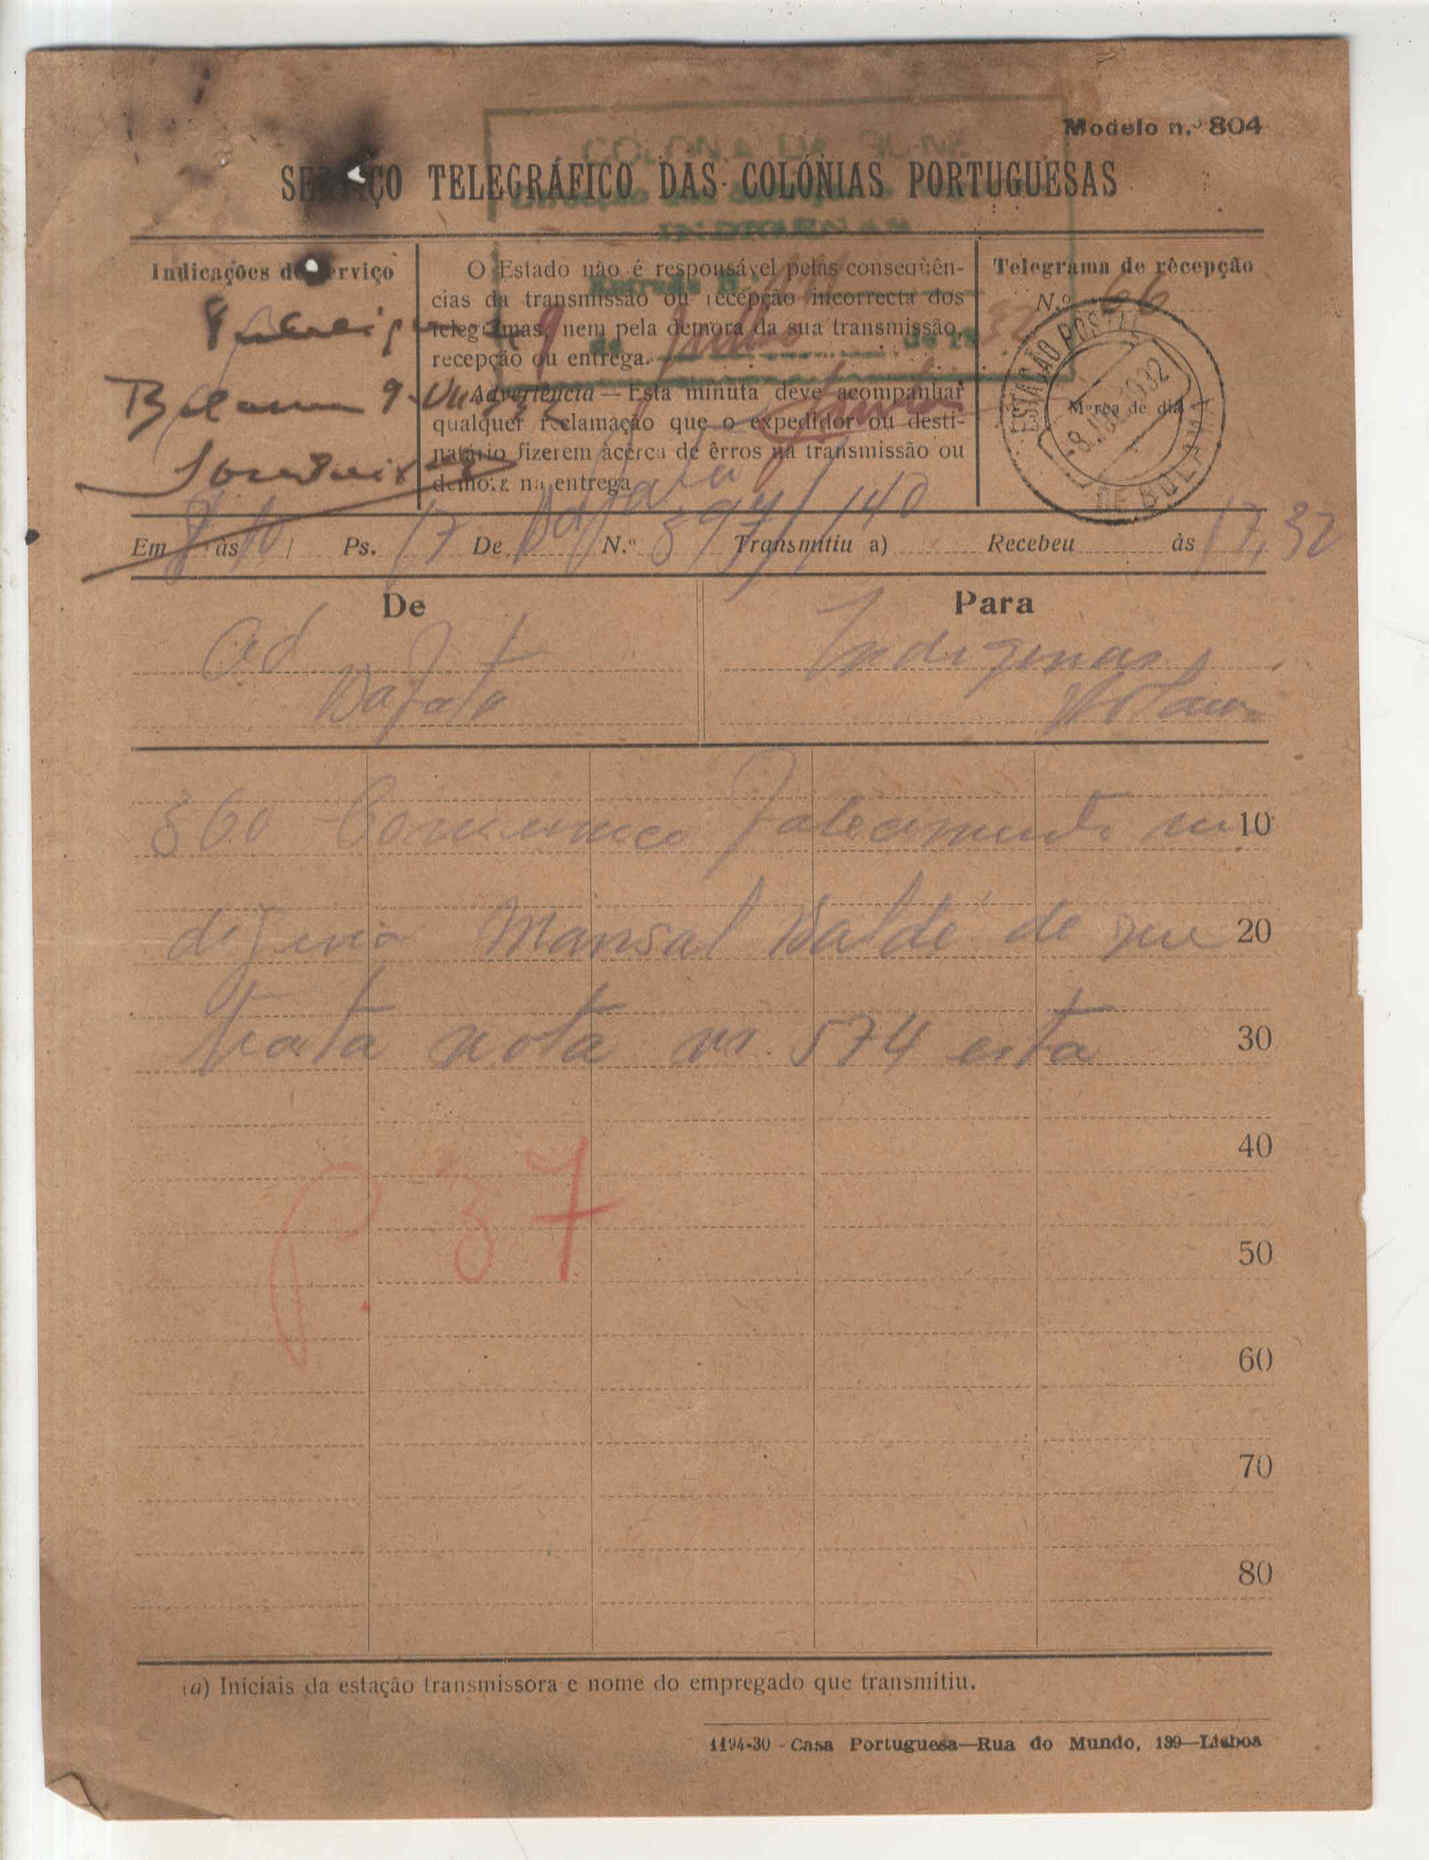 Modelo n.º 804
COLONIA DA GUINÉ
SERVIÇO TELEGRÁFICO DAS COLÓNIAS PORTUGUESAS
INDIGENAS
Indicações de serviço
O Estado não é responsável pelas conseqüên-
cias da transmissão ou recepção incorrecta dos
telegramas, nem pela demora da sua transmissão,
recepção ou entrega.
Advertência — Esta minuta deve acompanhar
qualquer reclamação que o expedidor ou desti-
natário fizerem àcêrca de êrros na transmissão ou
demora na entrega
Telegrama de recepção
N.º 66
Entrada N.º
9 de Julho de 1932
Bolama 9-
ESTAÇÃO POSTAL
Marca de dia
DE BOLAMA
Em 8 às 10 Ps. 17 De Bafata N.º 597/140 Transmitiu a) Recebeu às 17,32
De
Para
Ad
Bafata
Indigenas
Bolama
860 Comunico falecimento in
digena Mansal Baldé de que
trata nota nr. 574 esta
P. 37
10
20
30
40
50
60
70
80
(a) Iniciais da estação transmissora e nome do empregado que transmitiu.
1194-30 - Casa Portuguesa—Rua do Mundo, 139—Lisboa